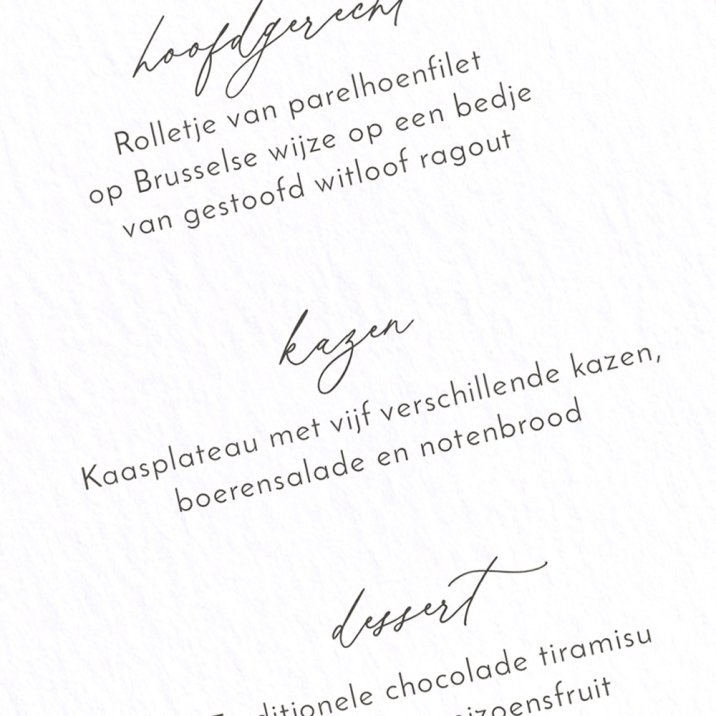 hoofdgerecht
Rolletje van parelhoenfilet
op Brusselse wijze op een bedje
van gestoofd witloof ragout
kazen
Kaasplateau met vijf verschillende kazen,
boerensalade en notenbrood
dessert
chocolade tiramisu